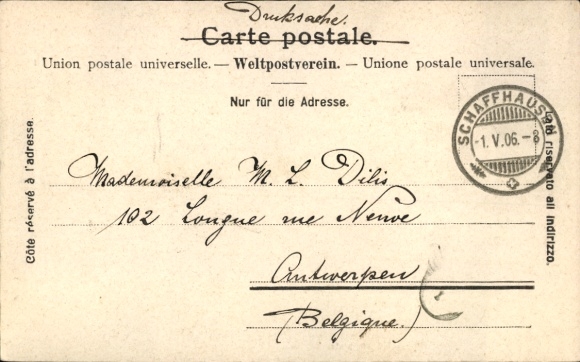 Drucksache.
Carte postale.
Union postale universelle. — Weltpostverein. — Unione postale universale.
Nur für die Adresse.
Côte réservé à l'adresse.
Lato riservato all indirizzo.
SCHAFFHAUSEN
-1.V.06.-8
Mademoiselle M. L. Dilis
102 Longue rue Neuve
Antwerpen
(Belgique.)
1